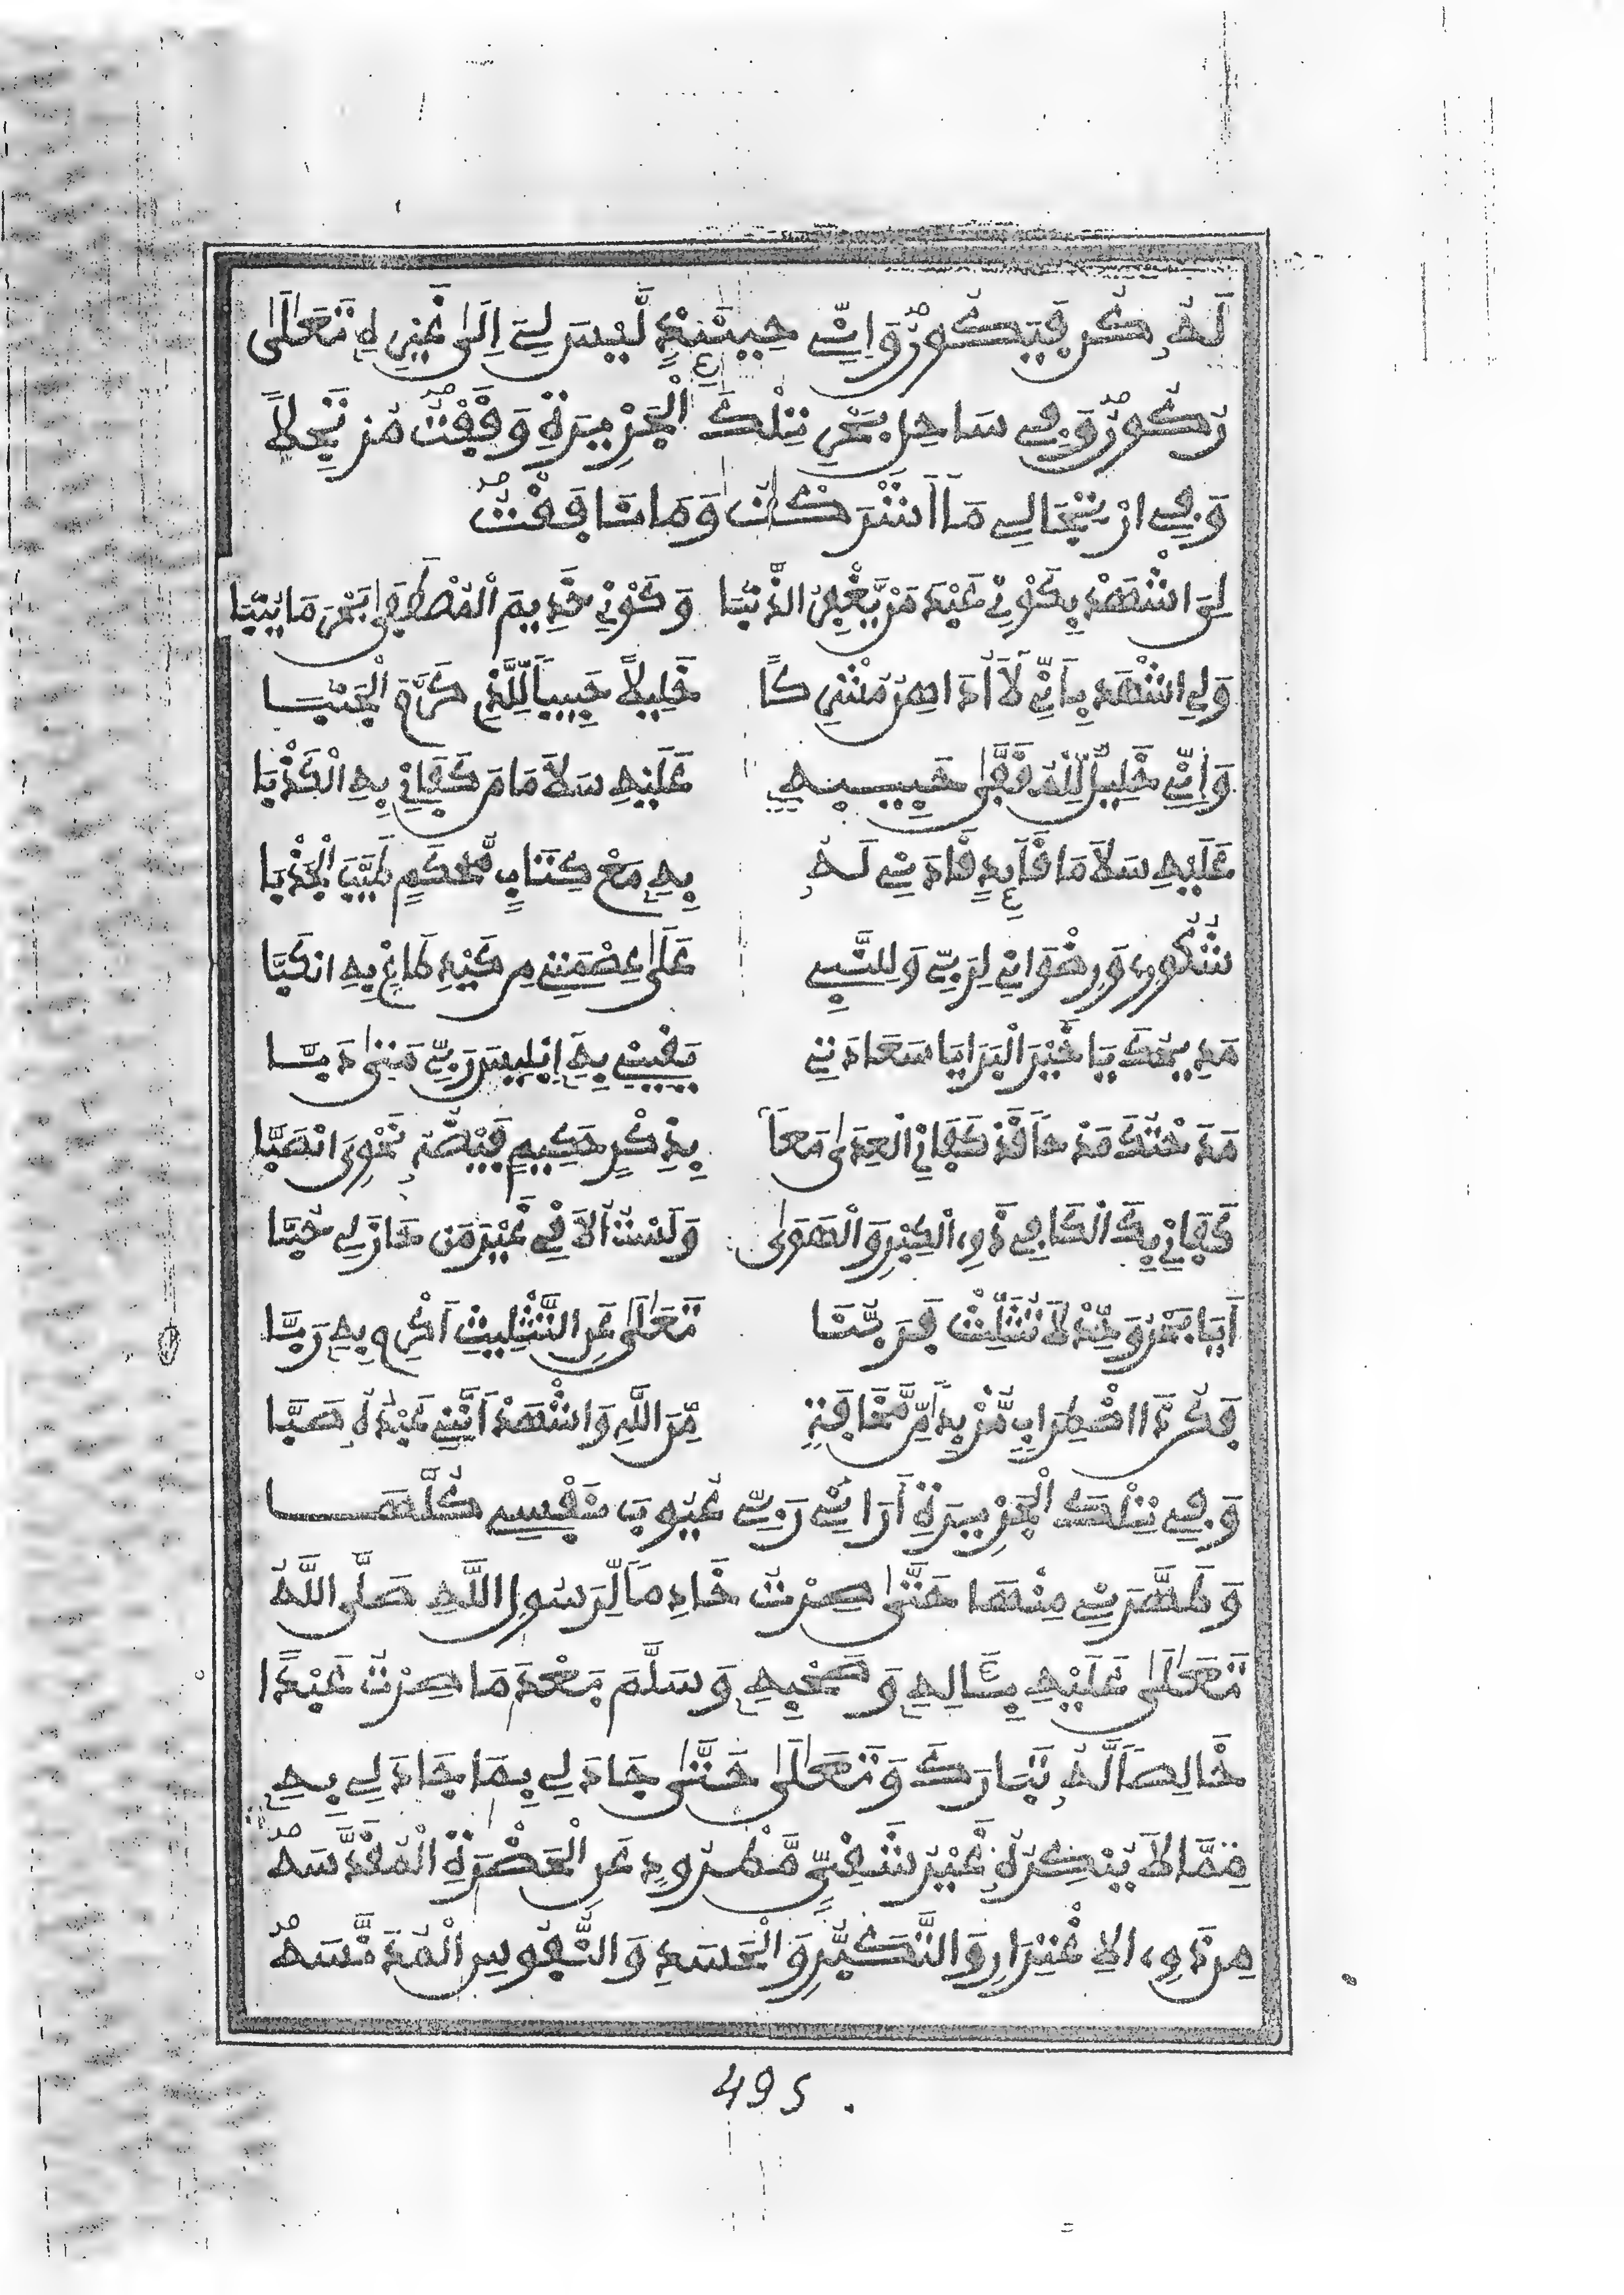 لَهُ كُن فَيَكُونُ وَإِنِّي حِينَئِذٍ لَّيْسَ لِي إِلَىٰ غَيْرِهِ تَعَالَىٰ
رُكُونٌ وَفِي سَاحِلِ بَحْرِ تِلْكَ الْجَزِيرَةِ وَقَفْتُ مُرْتَجِلًا
وَفِي ارْتِجَالِي مَا أَشْرَكْتُ وَمَا نَافَقْتُ
لِيَ اشْهَدْ بِكَوْنِي عَبْدَ مَن يَّغْفِرُ الذَّنْبَا وَكَوْنِي خَدِيمَ الْمُصْطَفَىٰ بَحْرَ مَا يَنْبَا
وَلِي اشْهَدْ بِأَنِّي لَا أُدَاهِنُ مُشْرِكًا خَلِيلًا حَبِيبًا لِلَّذِي كَرَّمَ الْجَنْبَا
وَإِنِّي خَلِيلٌ لِلَّهِ قَفَّىٰ حَبِيبِهِ عَلَيْهِ سَلَامَا مَن كَفَانِي بِهِ الْكَذْبَا
عَلَيْهِ سَلَامَا قَائِدٍ قَادَنِي لَهُ بِهِ مَعْ كِتَابٍ مُّحْكَمٍ طَيَّبَ الْجَذْبَا
شُكُورِي وَرِضْوَانِي لِرَبِّي وَلِلنَّبِي عَلَىٰ عِصْمَتِي مِن كَيْدِ طَاغٍ بِهِ انكَبَّا
مَدِيحُكَ يَا خَيْرَ الْبَرَايَا سَعَادَتِي يَقِينِي بِهِ إِبْلِيسَ رَبِّي مَتَىٰ دَبَّا
مَدَحْتُكَ مَدْحًا قَدْ كَفَانِي الْعِدَىٰ مَعًا بِذِكْرٍ حَكِيمٍ فَيْضُهُ نَحْوِيَ انْصَبَّا
كَفَانِي بِكَ الْكَافِي ذَوِي الْكِبْرِ وَالْهَوَىٰ وَلَسْتُ أُلَاقِي غَيْرَ مَن حَازَ لِي حُبَّا
أَيَا بَحْرُ وَحِّدْ لَا تُثَلِّثْ فَرَبُّنَا تَعَالَىٰ عَنِ التَّثْلِيثِ أَكْرِم بِهِ رَبَّا
فَكُن ذَا اضْطِرَابٍ مُّزْبِدًا مِّن مَّخَافَةٍ مِّنَ اللَّهِ وَاشْهَدْ أَنَّنِي عَبْدُهُ صَبَّا
وَفِي تِلْكَ الْجَزِيرَةِ أَرَانِي رَبِّي عُيُوبَ نَفْسِي كُلَّهَا
وَطَهَّرَنِي مِنْهَا حَتَّىٰ صِرْتُ خَادِمًا لِّرَسُولِ اللَّهِ صَلَّى اللَّهُ
تَعَالَىٰ عَلَيْهِ بِئَالِهِ وَصَحْبِهِ وَسَلَّمَ بَعْدَمَا صِرْتُ عَبْدًا
خَالِصًا لَّهُ تَبَارَكَ وَتَعَالَىٰ حَتَّىٰ جَادَ لِي بِمَا جَادَ لِي بِهِ
مِمَّا لَا يُنْكِرُهُ غَيْرُ شَقِيٍّ مَّطْرُودٍ عَنِ الْحَضْرَةِ الْمُقَدَّسَهْ
مِن ذَوِي الِاغْتِرَارِ وَالتَّكَبُّرِ وَالْحَسَدِ وَالنُّفُوسِ الْمُدَنَّسَهْ
495